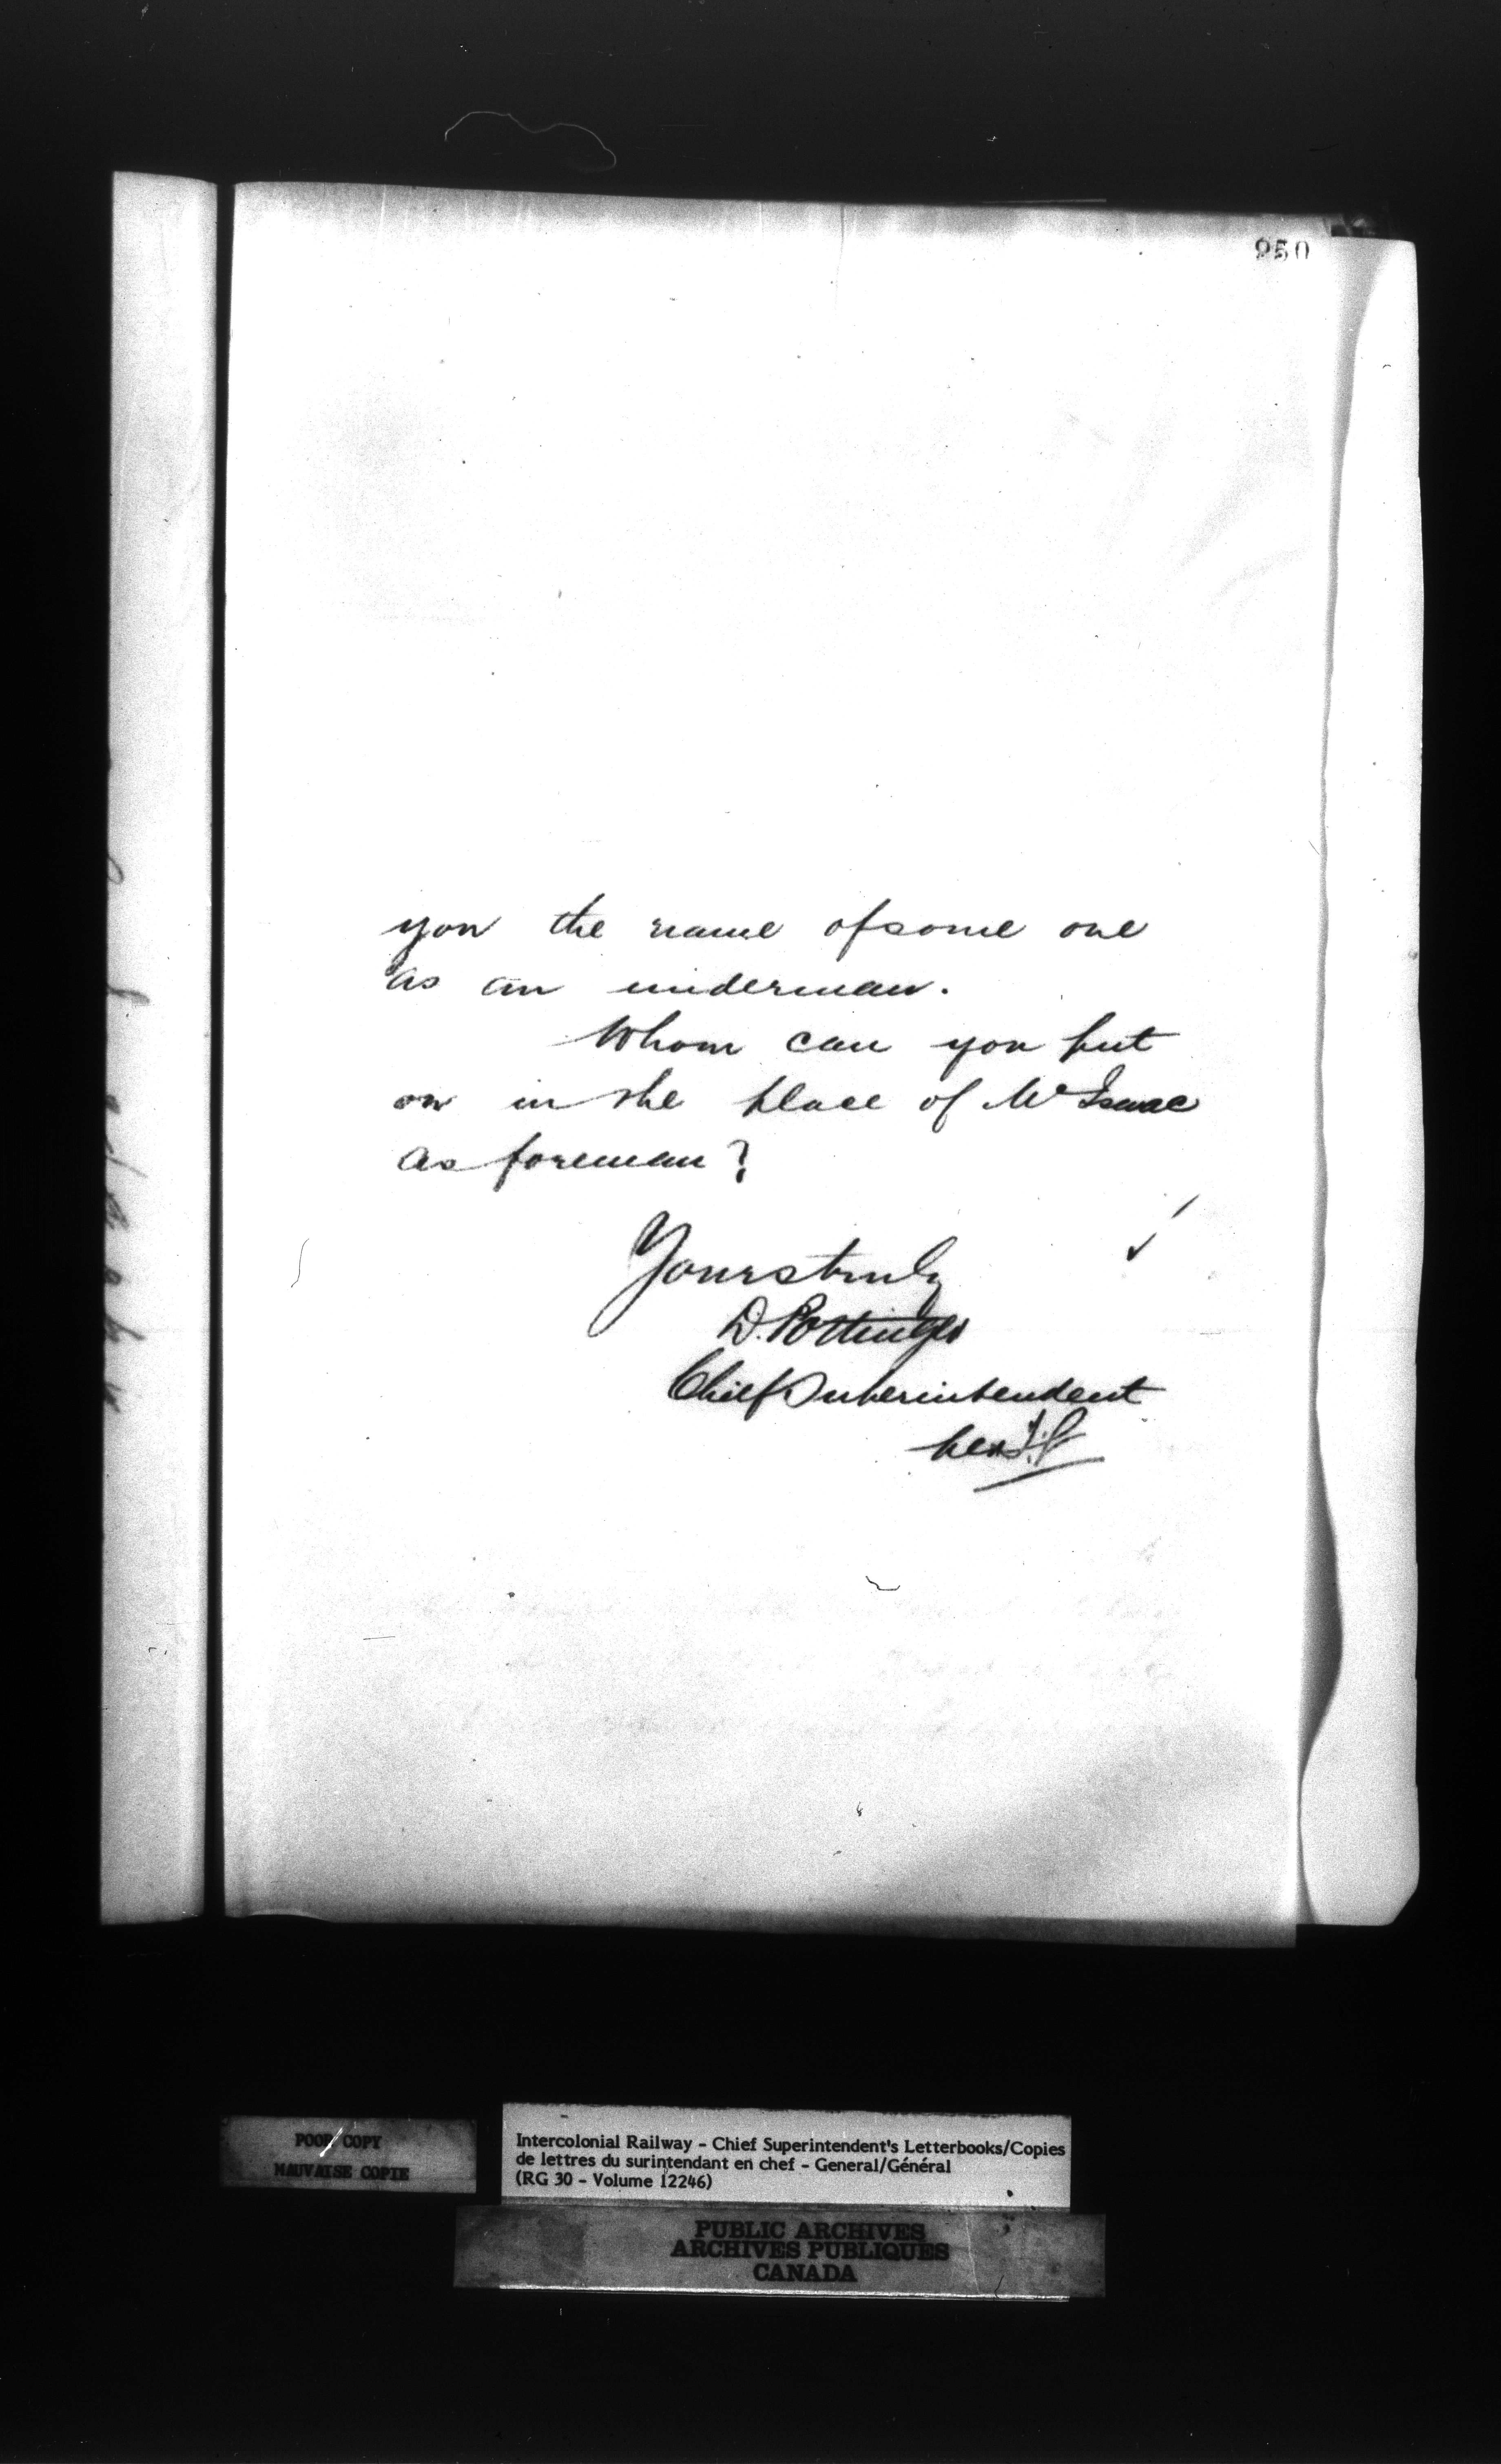 250
you the name of some one
as an underman.
Whom can you put
on in the place of McIsaac
as foreman?
Yours truly
D. Pottinger
Chief Superintendent
per
POOR COPY
MAUVAISE COPIE
Intercolonial Railway - Chief Superintendent's Letterbooks/Copies
de lettres du surintendant en chef - General/Général
(RG 30 - Volume 12246)
PUBLIC ARCHIVES
ARCHIVES PUBLIQUES
CANADA